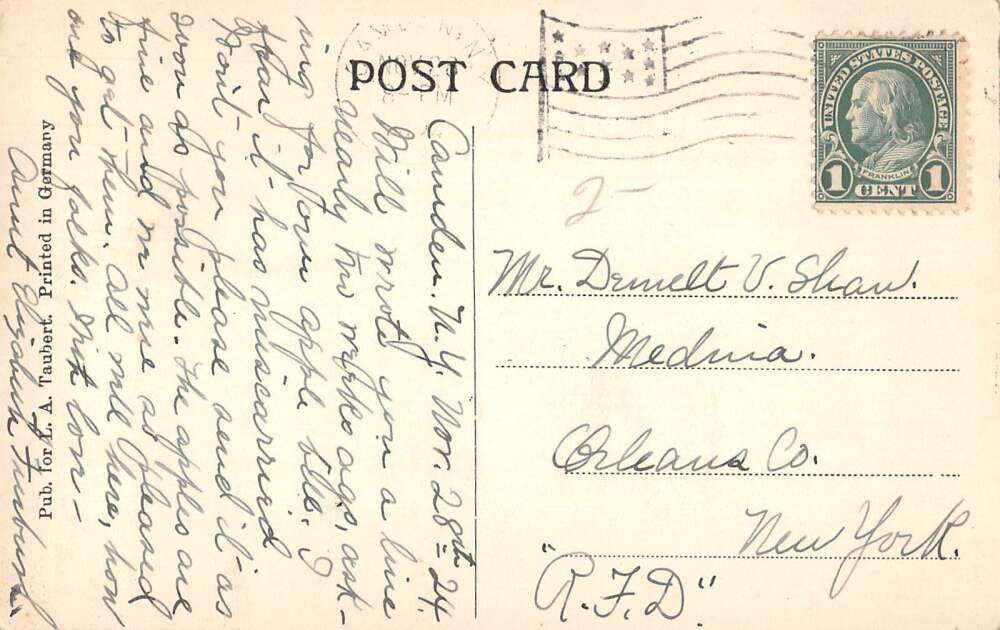 POST CARD
UNITED STATES POSTAGE
FRANKLIN
1 CENT 1
2-
Camden. N.Y. Nov. 28th = 24.
Will wrote you a line
nearly two weeks ago, ask-
ing for your apple bill. I
fear it has miscarried
Don't you please send it as
soon as possible. The apples are
fine and we were so pleased
to get them. All well here, how
are you folks. With love -
Aunt Elizabeth
Mr. Demelt V. Shaw.
Medina.
Orleans Co.
New York.
"R.F.D"
Pub. for L. A. Taubert. Printed in Germany